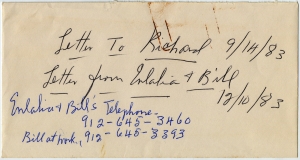 Letter To Richard 9/14/83
Letter from Eulalia & Bill
12/10/83
Eulalia & Bill's Telephone.
912-645-3460
Bill at work, 912-645-3393